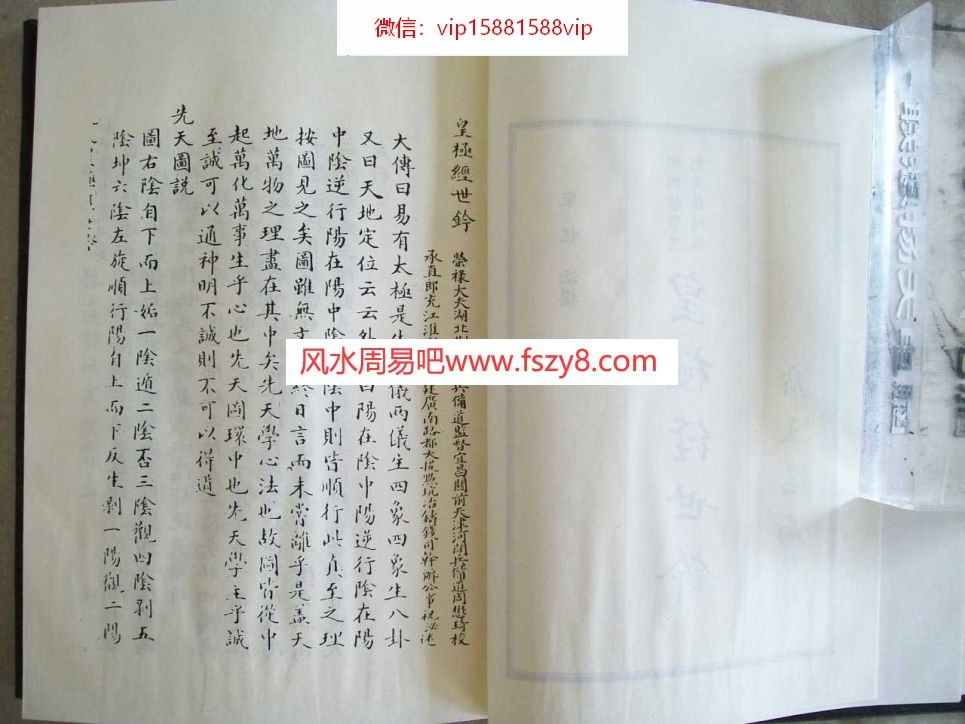 微信：vip15881588vip
风水周易吧www.fszy8.com
皇極經世鈐
榮祿大夫湖北 備道監督宜昌關前天津河間兵備道周懋琦校
承直郎充江淮 廣南路都大提點坑冶鑄錢司幹辦公事祝泌述
大傳曰易有太極是生 儀兩儀生四象四象生八卦
又曰天地定位云云外 曰陽在陰中陽逆行陰在陽
中陰逆行陽在陽中陰 陰中則皆順行此真至之理
按圖見之矣圖雖無文 終日言而未嘗離乎是蓋天
地萬物之理盡在其中矣先天學心法也故圖皆從中
起萬化萬事生乎心也先天圖環中也先天學主乎誠
至誠可以通神明不誠則不可以得道
先天圖説
圖右陰自下而上姤一陰遁二陰否三陰觀四陰剥五
陰坤六陰左旋順行陽自上而下反生剥一陽觀二陽
皇極經世鈐